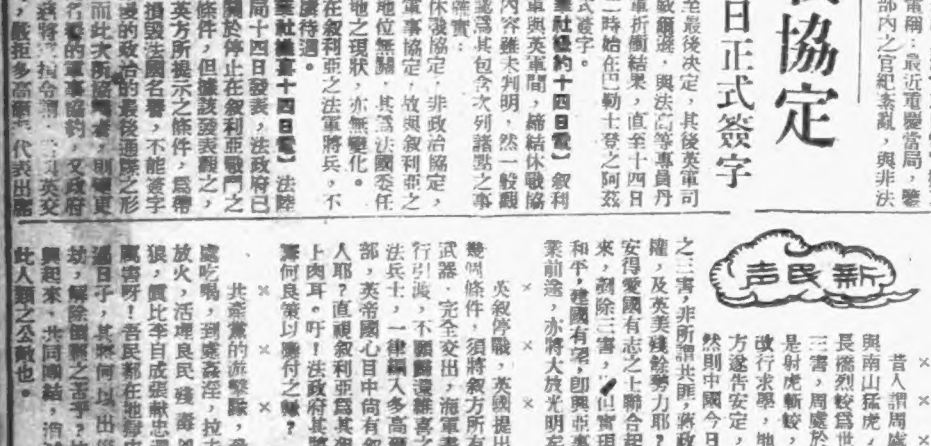 電稱：最近重慶當局，鑒
部內之官紀紊亂，與非法
協定
日正式簽字
至最後決定，其後英軍司
爾遜，與法高等專員丹
軍折衝結果，直至十四日
二時始在巴勒士登之阿茲
式簽字。
業社紐約十四日電】叙利
軍與英軍間，締結休戰協
內容雖未判明，然一般觀
認爲其包含次列諸點之事
確實：
休戰協定，非政治協定，
軍事協定，故與叙利亞之
地位無關，其爲法國委任
地之現狀，亦無變化。
在叙利亞之法軍將兵，不
虜待遇。
業社維喜十四日電】法陸
局十四日發表，法政府已
關於停止在叙利亞戰鬥之
條件，但據該發表觀之，
英方所提示之條件，爲帶
損毀法國名譽，不能簽字
的政治的最後通牒之形
而此次所協議者，則確更
的軍事協約，又政府
英交
嚴拒多高爾　代表出席
新民声
× × ×
昔人謂周處
與南山猛虎
長橋惡蛟爲世
三害，周處於
是射虎斬蛟
改行求學，地
方遂告安定，
然則中國今日
之三害，非所謂共匪，蔣政
權，及英美殘餘勢力耶？
安得愛國有志之士聯合起
來，剷除三害，不但實現
和平，建國有望，卽興亞事
業前途，亦將大放光明
× × ×
英叙停戰，英國提出
幾個條件，須將叙方所有
武器，完全交出，海軍
行引渡，不願歸還維喜之
法兵士，一律編入多高爾
部，英帝國心目中尙有叙
人耶？直視叙利亞爲其
上肉耳。吁！法政府其將
籌何良策以應付之
× × ×
共產黨的游擊隊，
處吃喝，到處姦淫，拉夫
放火，活埋良民，殘毒
狼，實比李自成張獻忠
厲害呀！吾民都在地
過日子，其將何以出
劫，解除倒懸之苦乎？
興起來，共同團結，消
此人類之公敵也。